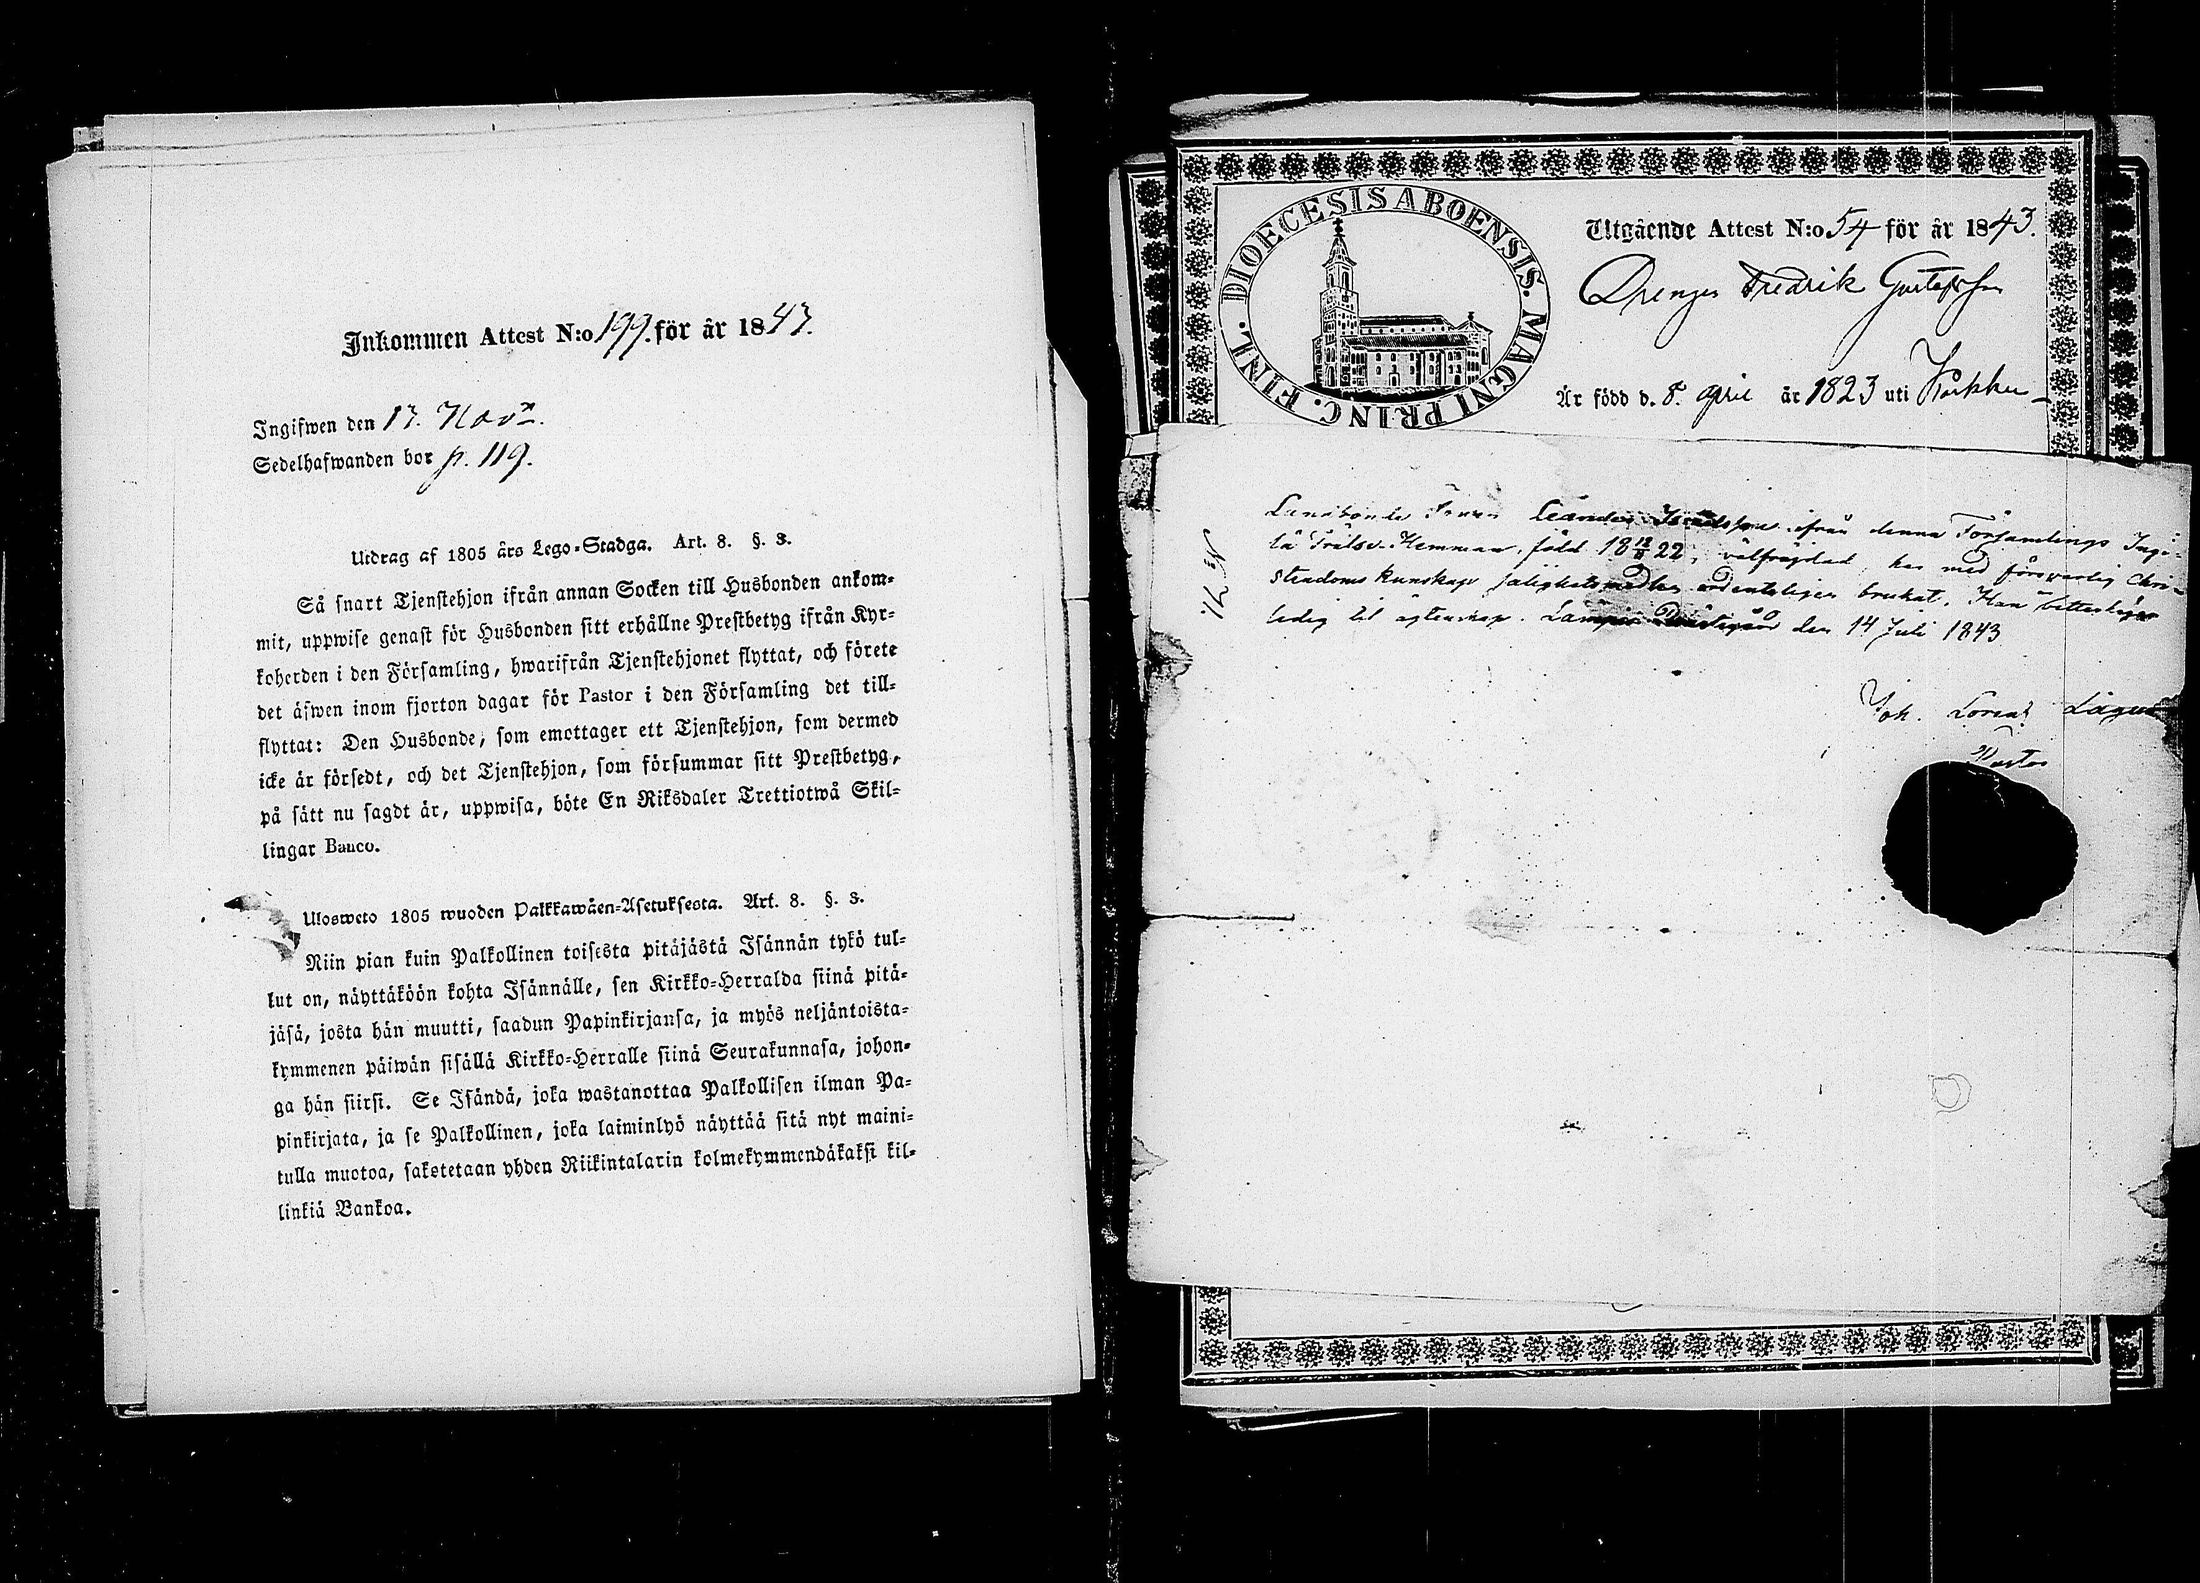 Inkommen Attest N:o 199. för år 1843.
Ingifwen den 17. Nov.
Sedelhafwanden bor p. 119.
Utdrag af 1805 års Lego-Stadga. Art. 8. §. 3.
Så snart Tjenstehjon ifrån annan Socken till Husbonden ankom-
mit, uppwise genast för Husbonden sitt erhållne Prestbetyg ifrån Kyr-
koherden i den Församling, hwarifrån Tjenstehjonet flyttat, och förete
det äfwen inom fjorton dagar för Pastor i den Församling det till-
flyttat: Den Husbonde, som emottager ett Tjenstehjon, som dermed
icke är försedt, och det Tjenstehjon, som försummar sitt Prestbetyg,
på sätt nu sagdt är, uppwisa, böte En Riksdaler Trettiotwå Skil-
lingar Banco.
Ulosweto 1805 wuoden Palkkawäen-Asetuksesta. Art. 8. §. 3.
Niin pian kuin Palkollinen toisesta pitäjästä Isännän tykö tul-
lut on, näyttäköön kohta Isännälle, sen Kirkko-Herralda siinä pitä-
jäsä, josta hän muutti, saadun Papinkirjansa, ja myös neljäntoista-
kymmenen päiwän sisällä Kirkko-Herralle siinä Seurakunnasa, johon-
ga hän siirsi. Se Isändä, joka wastanottaa Palkollisen ilman Pa-
pinkirjata, ja se Palkollinen, joka laiminlyö näyttää sitä nyt maini-
tulla muotoa, saketetaan yhden Riikintalarin kolmekymmendäkaksi kil-
linkiä Bankoa.
DIOECESIS ABOENSIS. MAGNI PRINC. FINL.
Utgående Attest N:o 54 för år 1843.
Drengen Fredrik Gustafsson
Är född d. 8. april år 1823 uti
Landbonde Leander Israelsson ifrån denna Församlings Ingi-
lä Frälse-Hemman, född 18 22, välfrägdad, har med försvarlig Chri-
stendoms kunskap salighetsmedlen ordenteligen brukat. Han
ledig til ägtenskap. den 14 Juli 1843
Joh. Lorenz
Pastor